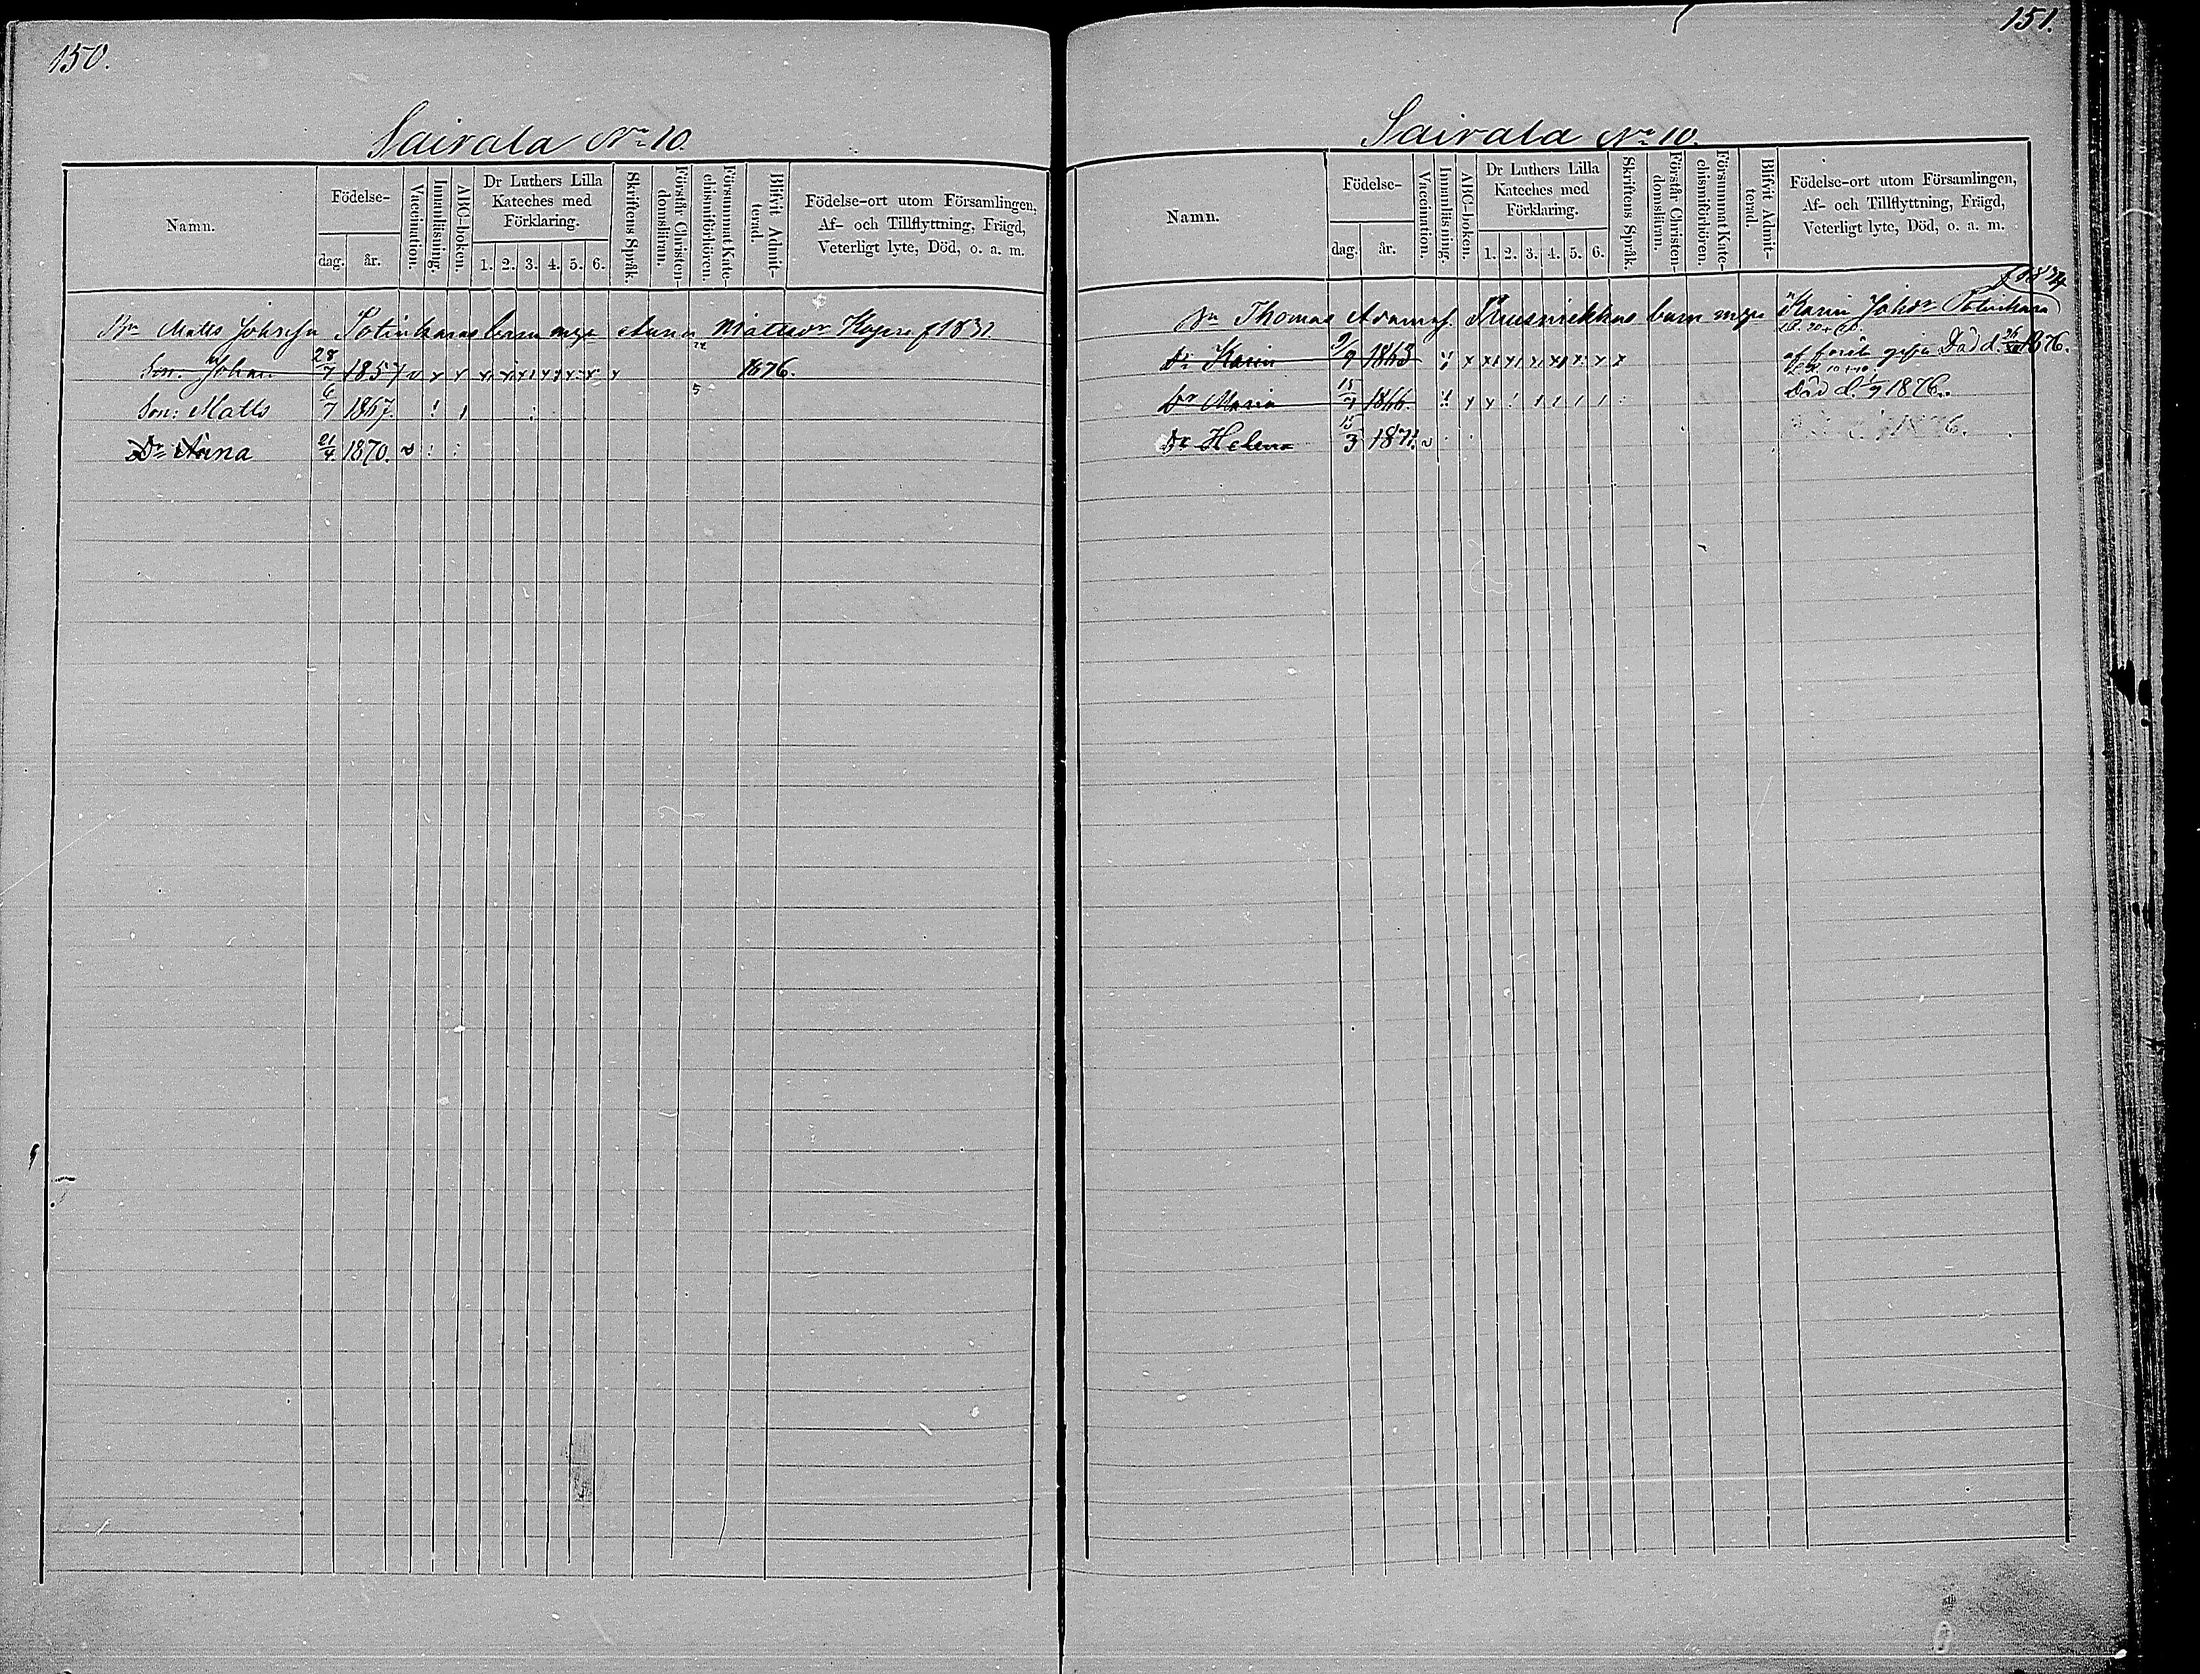 150.
Sairala No 10
Namn.
Födelse-
dag.
år.
Vaccination.
Innanläsning.
ABC-boken.
Dr Luthers Lilla Kateches med Förklaring.
1. 2. 3. 4. 5. 6.
Skriftens Språk.
Förstår Christendomsläran.
Försummat Katechismiförhören.
Blifvit Admitterad.
Födelse-ort utom Församlingen,
Af- och Tillflyttning, Frägd,
Veterligt lyte, Död, o. a. m.
Bn Matts Johnsn Potinkaras barn Anna f 1831.
Son: Johan 28/7 1857 v x x x x x x x x x 1876.
Son: Matts 6/7 1867.
Dr Anna 21/4 1870. v
151.
Sairala No 10.
Namn.
Födelse-
dag.
år.
Vaccination.
Innanläsning.
ABC-boken.
Dr Luthers Lilla Kateches med Förklaring.
1. 2. 3. 4. 5. 6.
Skriftens Språk.
Förstår Christendomsläran.
Försummat Katechismiförhören.
Blifvit Admitterad.
Födelse-ort utom Församlingen,
Af- och Tillflyttning, Frägd,
Veterligt lyte, Död, o. a. m.
Bn Thomas barn Karin Johdr
Dr Karin 2/9 1863 Död d. 1876.
Dr Maria 1866. Död d. 1876.
Dr Helena 3 187